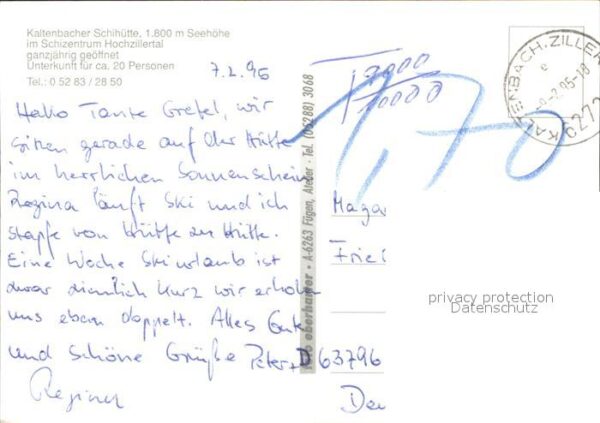 Kaltenbacher Schihütte, 1.800 m Seehöhe
im Schizentrum Hochzillertal
ganzjährig geöffnet
Unterkunft für ca. 20 Personen
Tel.: 0 52 83 / 28 50
7.2.96
Hallo Tante Gretel, wir
sitzen gerade auf der Hütte
im herrlichen Sonnenschein
Regina läuft Ski und ich
stapfe von Hütte zu Hütte.
Eine Woche Skiurlaub ist
zwar ziemlich kurz wir erholen
uns eben doppelt. Alles Gute
und schöne Grüße Peter +
Regina
eberharter • A-6263 Fügen, Atelier · Tel. (05288) 3068
T 9000
10000
1,70
KALTENBACH, ZILLER
6272
Maga
Frie
D 63796
privacy protection
Datenschutz